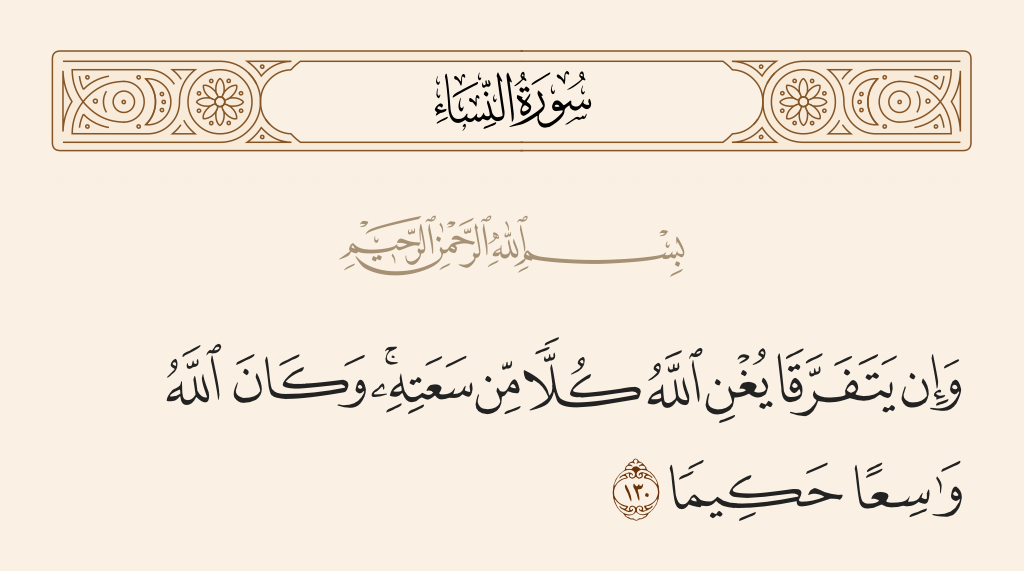 سُورَةُ النِّسَاءِ
بِسْمِ ٱللَّهِ ٱلرَّحْمَٰنِ ٱلرَّحِيمِ
وَإِن يَتَفَرَّقَا يُغْنِ ٱللَّهُ كُلًّا مِّن سَعَتِهِۦۚ وَكَانَ ٱللَّهُ
وَٰسِعًا حَكِيمًا ١٣٠